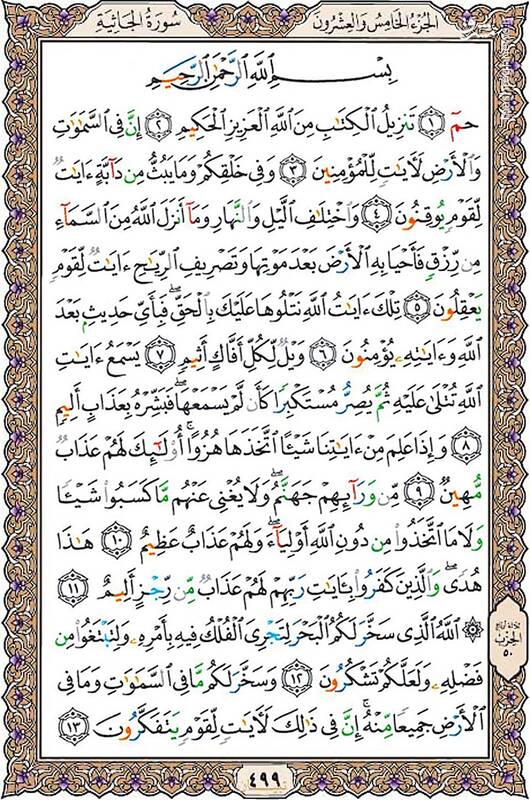 سُورَةُ الجَاثِيَة
الجُزءُ الخَامِسُ وَالعِشْرُونَ
بِسْمِ ٱللَّهِ ٱلرَّحْمَٰنِ ٱلرَّحِيمِ
حمٓ ١ تَنزِيلُ ٱلْكِتَٰبِ مِنَ ٱللَّهِ ٱلْعَزِيزِ ٱلْحَكِيمِ ٢ إِنَّ فِى ٱلسَّمَٰوَٰتِ
وَٱلْأَرْضِ لَءَايَٰتٍ لِّلْمُؤْمِنِينَ ٣ وَفِى خَلْقِكُمْ وَمَا يَبُثُّ مِن دَآبَّةٍ ءَايَٰتٌ
لِّقَوْمٍ يُوقِنُونَ ٤ وَٱخْتِلَٰفِ ٱلَّيْلِ وَٱلنَّهَارِ وَمَآ أَنزَلَ ٱللَّهُ مِنَ ٱلسَّمَآءِ
مِن رِّزْقٍ فَأَحْيَا بِهِ ٱلْأَرْضَ بَعْدَ مَوْتِهَا وَتَصْرِيفِ ٱلرِّيَٰحِ ءَايَٰتٌ لِّقَوْمٍ
يَعْقِلُونَ ٥ تِلْكَ ءَايَٰتُ ٱللَّهِ نَتْلُوهَا عَلَيْكَ بِٱلْحَقِّ ۖ فَبِأَىِّ حَدِيثٍۭ بَعْدَ
ٱللَّهِ وَءَايَٰتِهِۦ يُؤْمِنُونَ ٦ وَيْلٌ لِّكُلِّ أَفَّاكٍ أَثِيمٍ ٧ يَسْمَعُ ءَايَٰتِ
ٱللَّهِ تُتْلَىٰ عَلَيْهِ ثُمَّ يُصِرُّ مُسْتَكْبِرًا كَأَن لَّمْ يَسْمَعْهَا ۖ فَبَشِّرْهُ بِعَذَابٍ أَلِيمٍ
٨ وَإِذَا عَلِمَ مِنْ ءَايَٰتِنَا شَيْـًٔا ٱتَّخَذَهَا هُزُوًا ۚ أُو۟لَٰٓئِكَ لَهُمْ عَذَابٌ
مُّهِينٌ ٩ مِّن وَرَآئِهِمْ جَهَنَّمُ ۖ وَلَا يُغْنِى عَنْهُم مَّا كَسَبُوا۟ شَيْـًٔا
وَلَا مَا ٱتَّخَذُوا۟ مِن دُونِ ٱللَّهِ أَوْلِيَآءَ ۖ وَلَهُمْ عَذَابٌ عَظِيمٌ ١٠ هَٰذَا
هُدًى ۖ وَٱلَّذِينَ كَفَرُوا۟ بِـَٔايَٰتِ رَبِّهِمْ لَهُمْ عَذَابٌ مِّن رِّجْزٍ أَلِيمٌ ١١
۞ ٱللَّهُ ٱلَّذِى سَخَّرَ لَكُمُ ٱلْبَحْرَ لِتَجْرِىَ ٱلْفُلْكُ فِيهِ بِأَمْرِهِۦ وَلِتَبْتَغُوا۟ مِن
فَضْلِهِۦ وَلَعَلَّكُمْ تَشْكُرُونَ ١٢ وَسَخَّرَ لَكُم مَّا فِى ٱلسَّمَٰوَٰتِ وَمَا فِى
ٱلْأَرْضِ جَمِيعًا مِّنْهُ ۚ إِنَّ فِى ذَٰلِكَ لَءَايَٰتٍ لِّقَوْمٍ يَتَفَكَّرُونَ ١٣
ثلاثة أرباع
الحزب
٥٠
٤٩٩